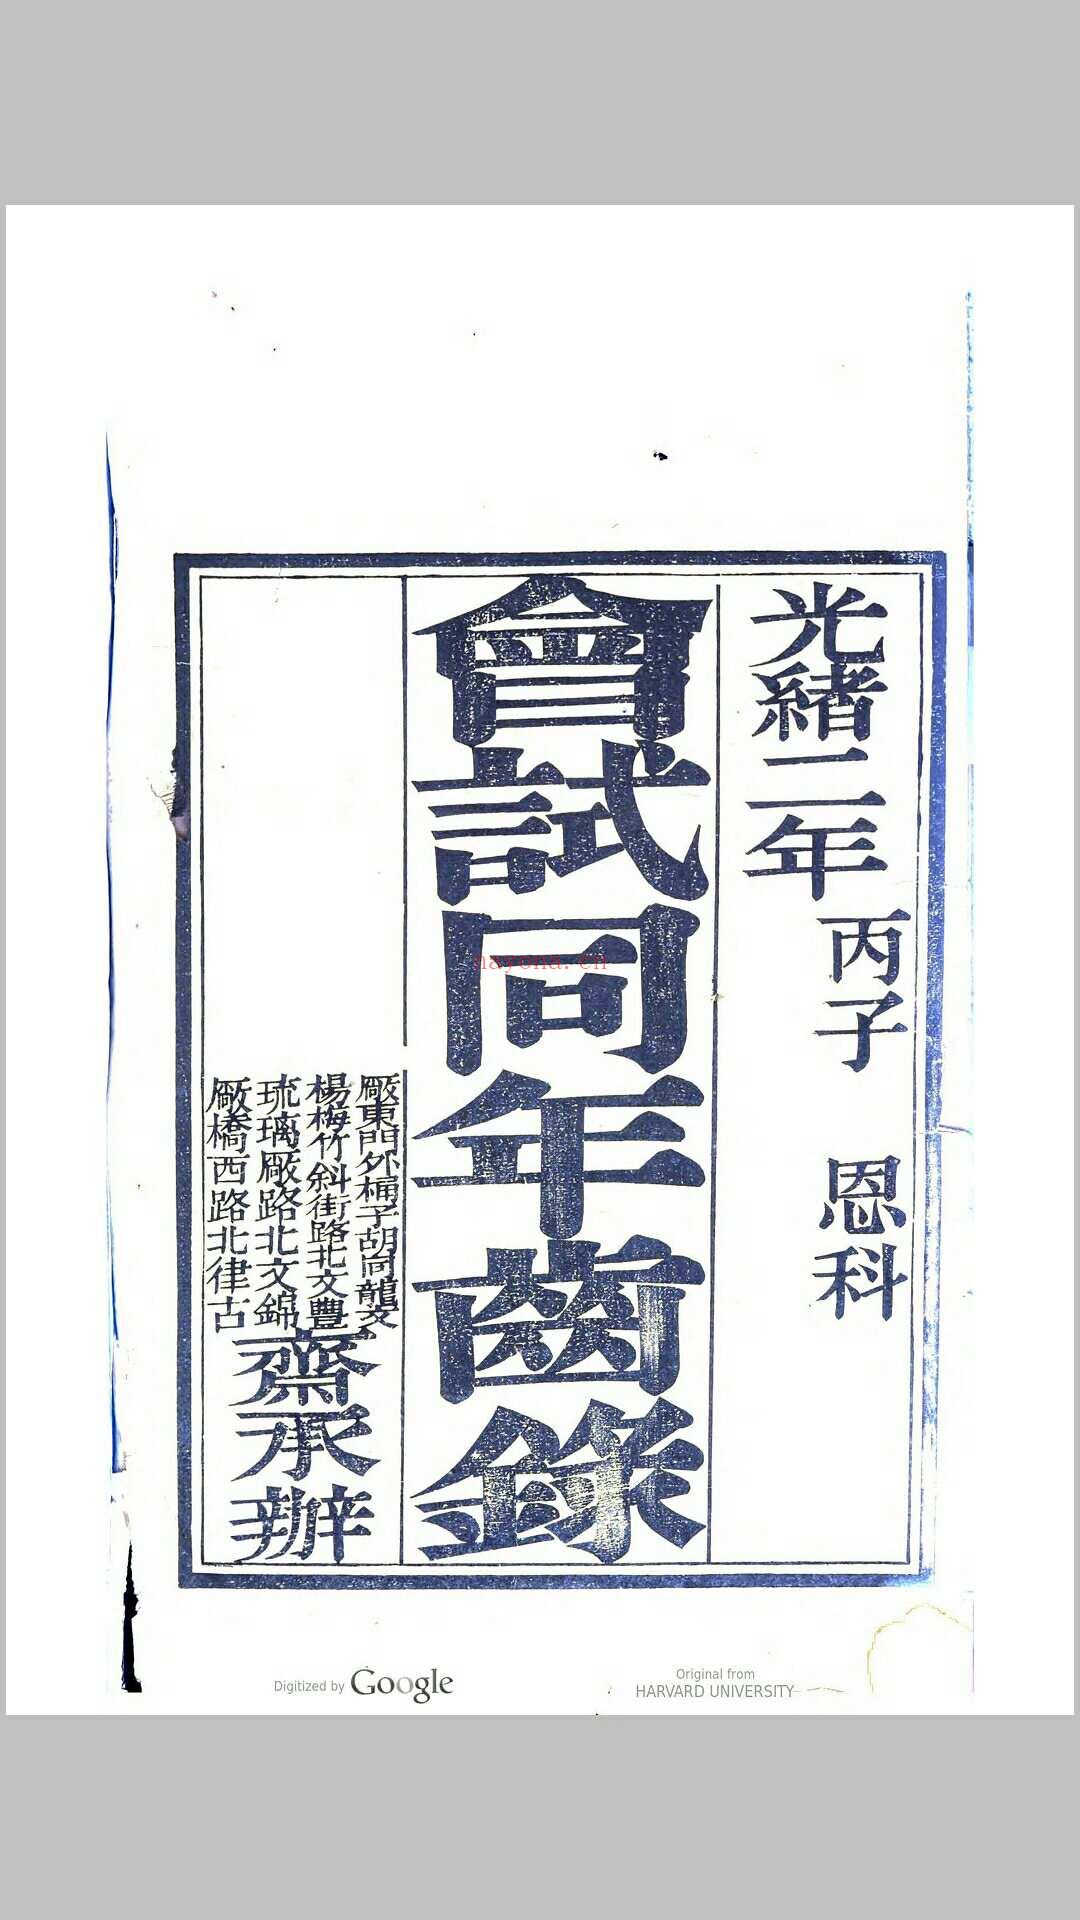 光緒二年丙子 恩科
會試同年齒錄
廠東門外桶子胡同龍文
楊梅竹斜街路北文豐
琉璃廠路北文錦
廠橋西路北律古
齋承辦
nayona.cn
Digitized by Google
Original from
HARVARD UNIVERSITY